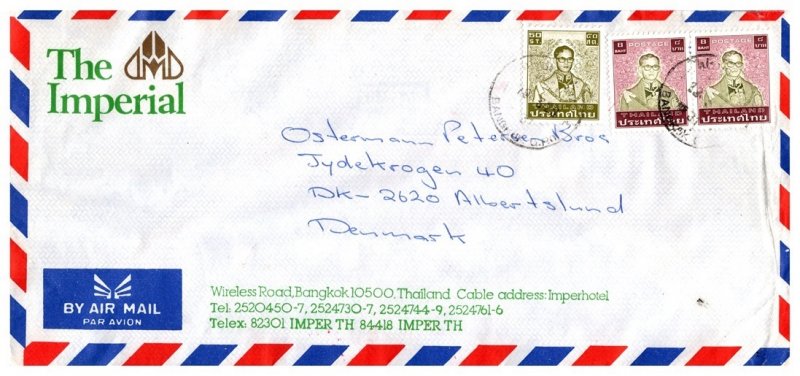 The
Imperial
50 ST. ๕๐ สต.
THAILAND
ประเทศไทย
8 BAHT POSTAGE ๘ บาท
THAILAND
ประเทศไทย
8 BAHT POSTAGE ๘ บาท
THAILAND
ประเทศไทย
Ostermann Petersen Bros
Jydekrogen 40
DK-2620 Albertslund
Denmark
BY AIR MAIL
PAR AVION
Wireless Road, Bangkok 10500, Thailand Cable address: Imperhotel
Tel. 2520450-7, 2524730-7, 2524744-9, 2524761-6
Telex: 82301 IMPER TH 84418 IMPER TH